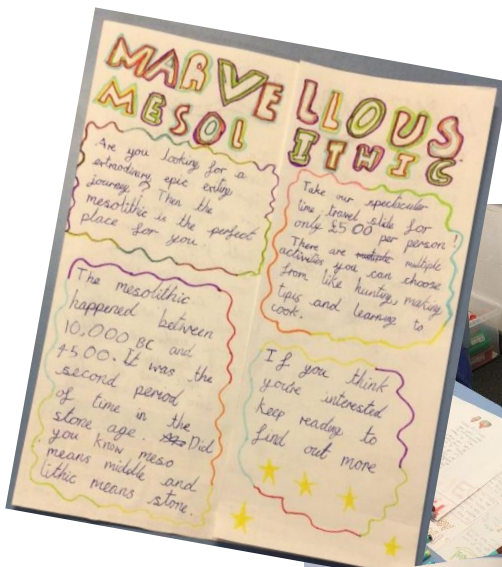 MARVELLOUS
MESOLITHIC
Are you looking for a
extrodinary epic exiting
journey? Then the
mesolithic is the perfect
place for you.
The mesolithic
happened between
10,000 BC and
4500. It was the
second period
of time in the
stone age. Did
you know meso
means middle and
lithic means stone.
Take our spectacular
time travel slide for
only £500 per person!
There are multiple
activities you can choose
from like hunting, making
tipis and learning to
cook.
If you think
you're interested
keep reading to
find out more